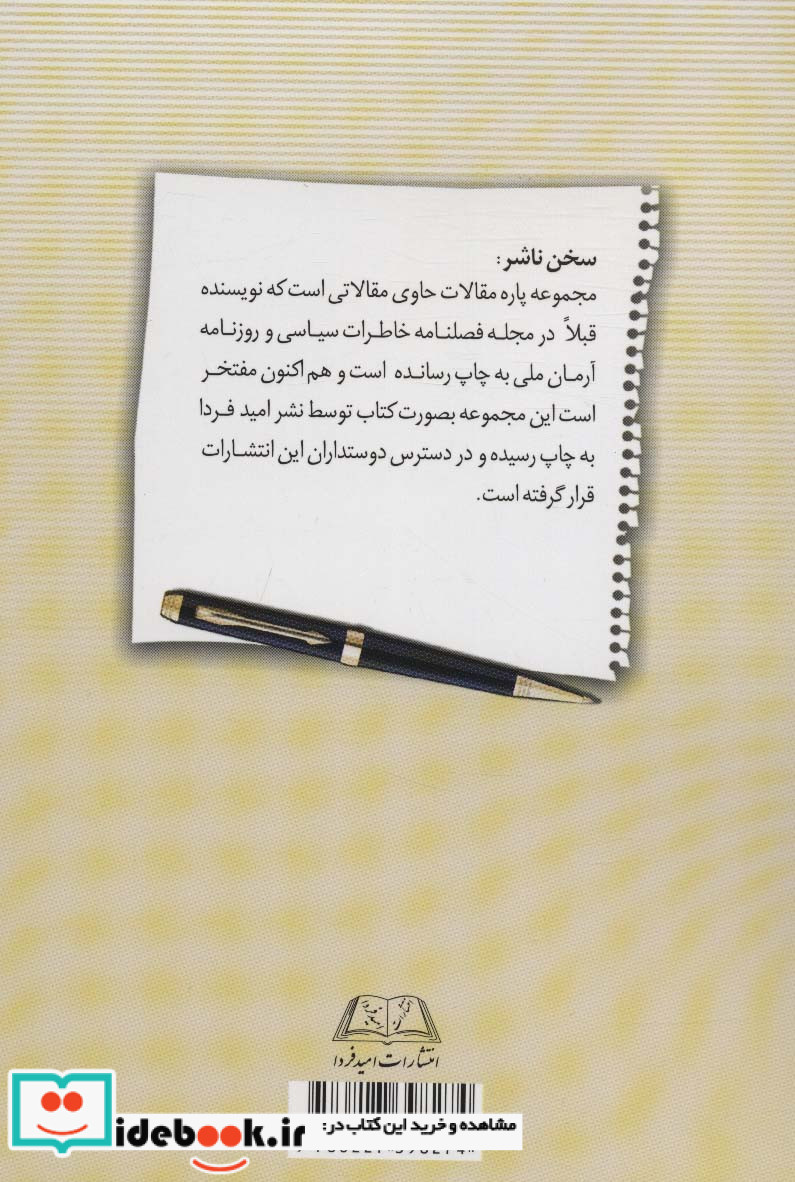 سخن ناشر:
مجموعه پاره مقالات حاوی مقالاتی است که نویسنده
قبلاً در مجله فصلنامه خاطرات سیاسی و روزنامه
آرمان ملی به چاپ رسانده است و هم اکنون مفتخر
است این مجموعه بصورت کتاب توسط نشر امید فردا
به چاپ رسیده و در دسترس دوستداران این انتشارات
قرار گرفته است.
انتشارات امید فردا
مشاهده و خرید این کتاب در:
idebook.ir